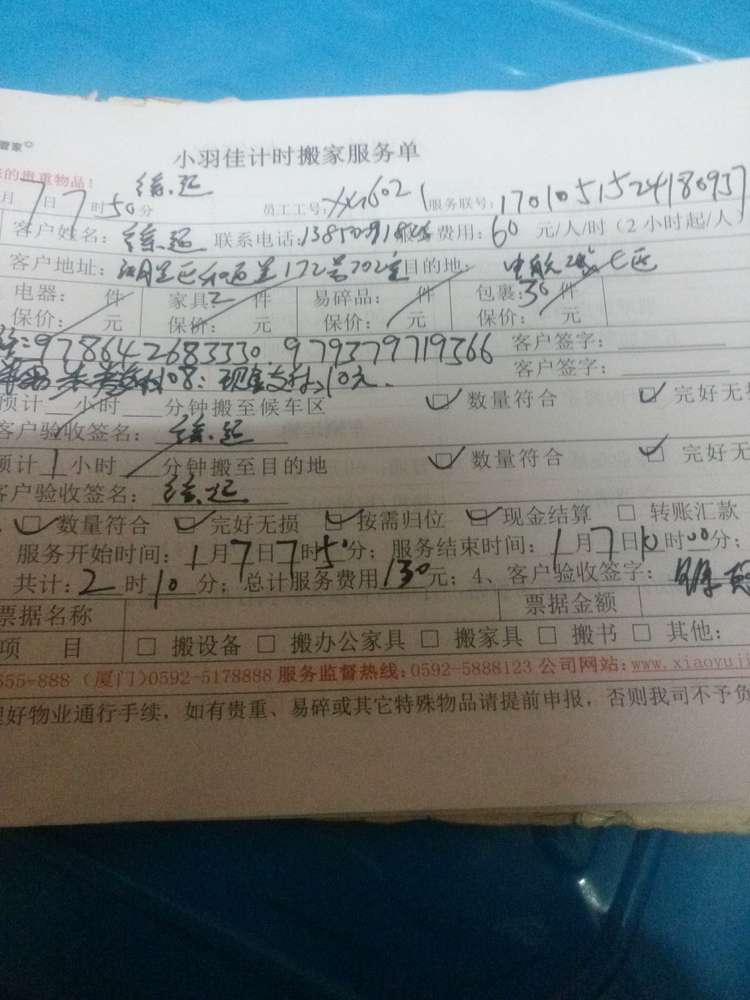 管家
小羽佳计时搬家服务单
的贵重物品:
月7日7时50分 员工工号: xy1602 服务联号: 1701051524180937
客户姓名: 联系电话: 费用: 60 元/人/时(2小时起/人)
客户地址: 湖里区 172号702室 目的地: 中航 七区
电器: 件 家具2件 易碎品: 件 包裹:30件
保价: 元 保价: 元 保价: 元 保价: 元
9786642683330. 979379719366 客户签字:
108: 现金支付210元. 客户签字:
预计 小时 分钟搬至候车区 ☑ 数量符合 ☑ 完好无损
客户验收签名:
预计1小时 分钟搬至目的地 ☑ 数量符合 ☑ 完好无
客户验收签名:
☑ 数量符合 ☑ 完好无损 ☑ 按需归位 ☑ 现金结算 □ 转账汇款
服务开始时间: 1月7日7时50分; 服务结束时间: 1月7日10时00分;
共计: 2时10分; 总计服务费用130元; 4、客户验收签字:
票据名称 票据金额
项 目 □ 搬设备 □ 搬办公家具 □ 搬家具 □ 搬书 □ 其他:
555-888 (厦门)0592-5178888 服务监督热线:0592-5888123 公司网站:www.xiaoyuji
理好物业通行手续,如有贵重、易碎或其它特殊物品请提前申报,否则我司不予负